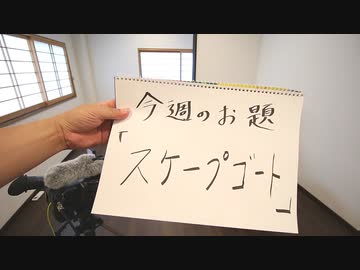 今週のお題
「スケープゴート」